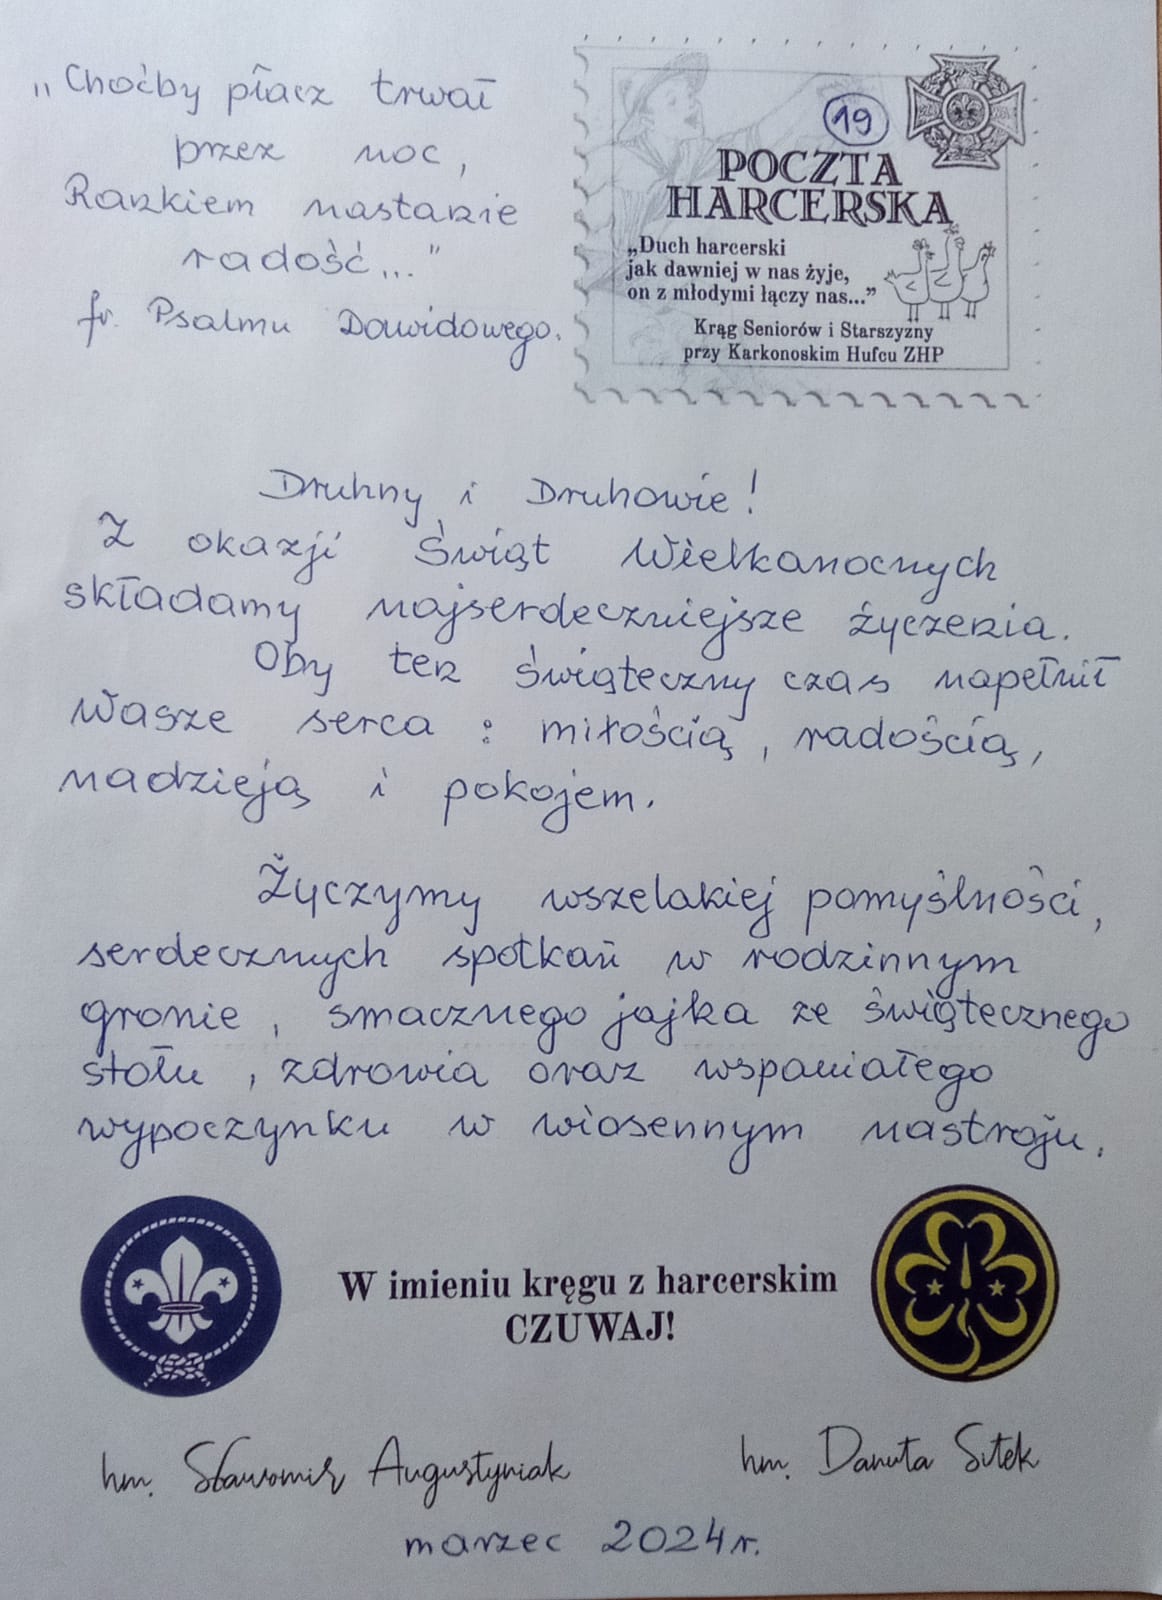 „Choćby płacz trwał
przez noc,
Rankiem nastanie
radość..."
fr. Psalmu Dawidowego.
19
POCZTA
HARCERSKA
„Duch harcerski
jak dawniej w nas żyje,
on z młodymi łączy nas...”
Krąg Seniorów i Starszyzny
przy Karkonoskim Hufcu ZHP
Druhny i Druhowie!
Z okazji Świąt Wielkanocnych
składamy najserdeczniejsze życzenia.
Oby ten świąteczny czas napełnił
Wasze serca : miłością, radością,
nadzieją i pokojem.
Życzymy wszelakiej pomyślności,
serdecznych spotkań w rodzinnym
gronie, smacznego jajka ze świątecznego
stołu, zdrowia oraz wspaniałego
wypoczynku w wiosennym nastroju.
W imieniu kręgu z harcerskim
CZUWAJ!
hm. Sławomir Augustyniak
hm. Danuta Sitek
marzec 2024r.